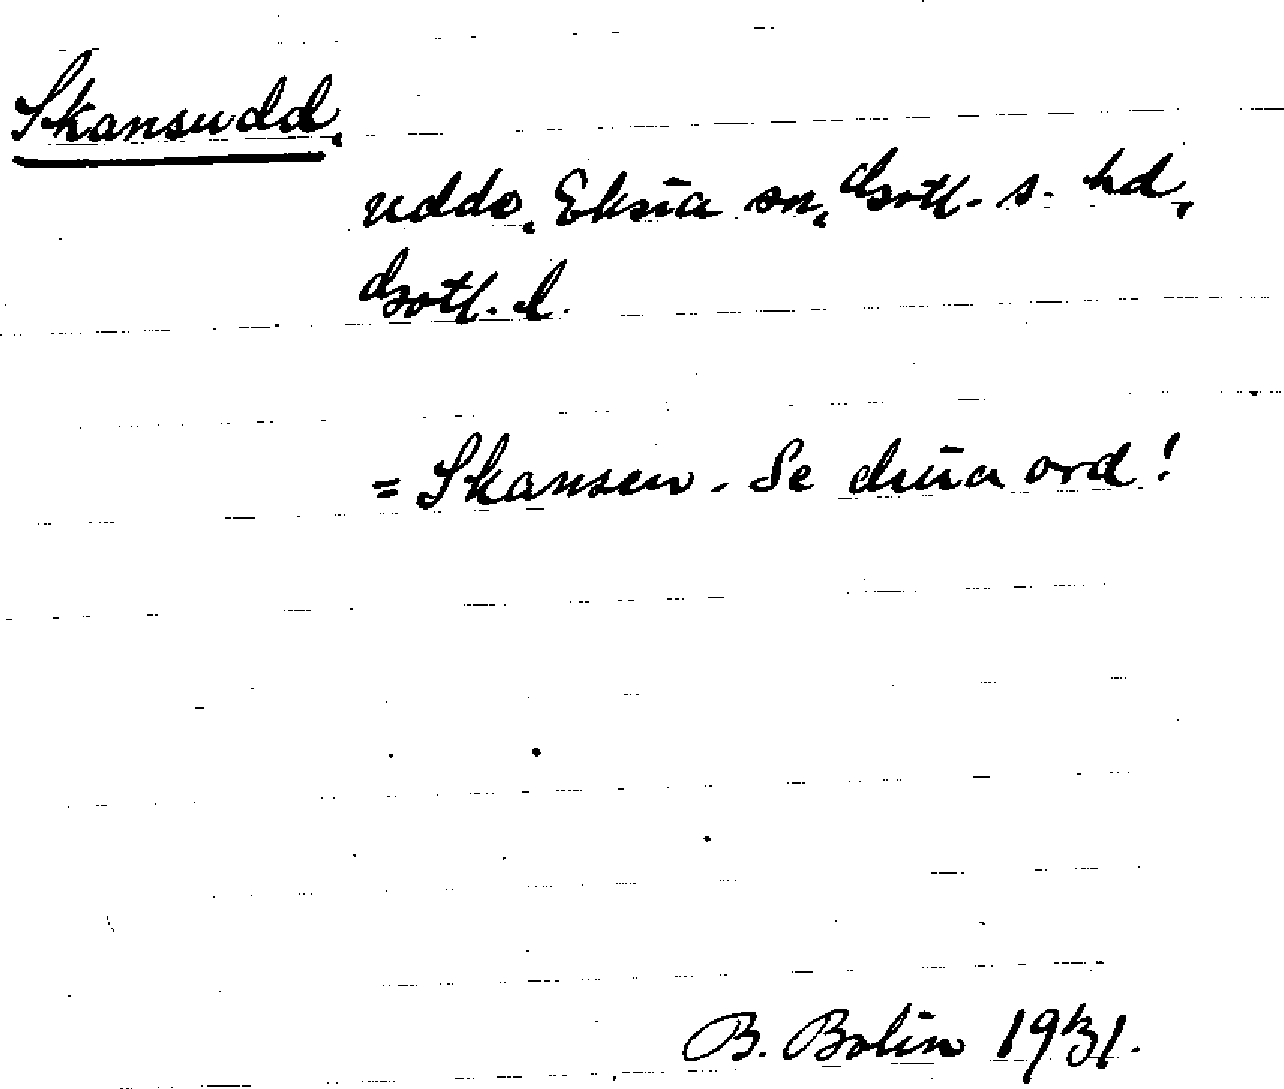 Skansudd,
udde, Eksta sn, Gotl. s. hd,
Gotl. l.
= Skansen. Se detta ord!
B. Bolin 1931.